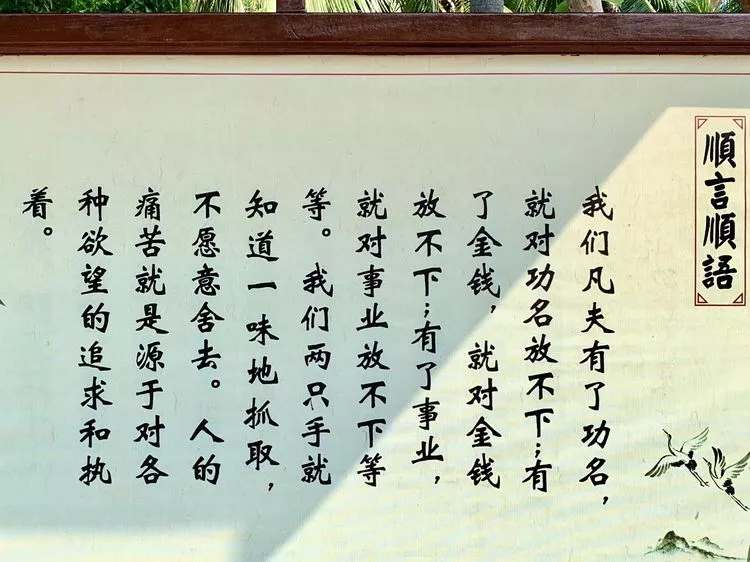 順言順語
我们凡夫有了功名，
就对功名放不下；有
了金钱，就对金钱
放不下；有了事业，
就对事业放不下等
等。我们两只手就
知道一味地抓取，
不愿意舍去。人的
痛苦就是源于对各
种欲望的追求和执
着。